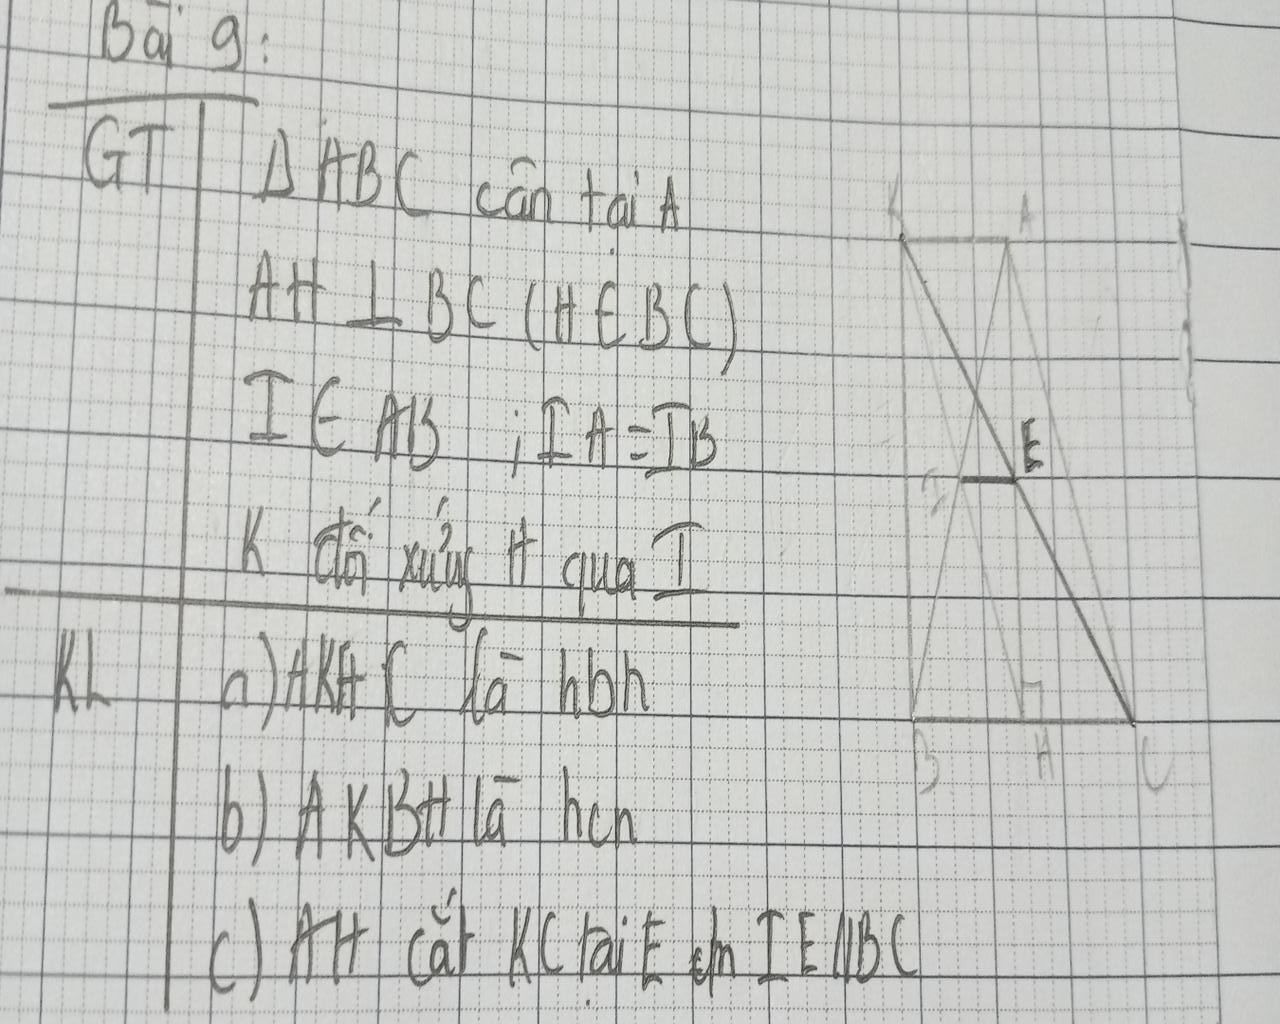 Bài 9:
GT
Δ ABC cân tại A
AH ⊥ BC (H ∈ BC)
I ∈ AB ; IA = IB
K đối xứng H qua I
KL
a) AKHC là hbh
b) AKBH là hcn
c) AH cắt KC tại E cm IE // BC
K A
I E
B H C